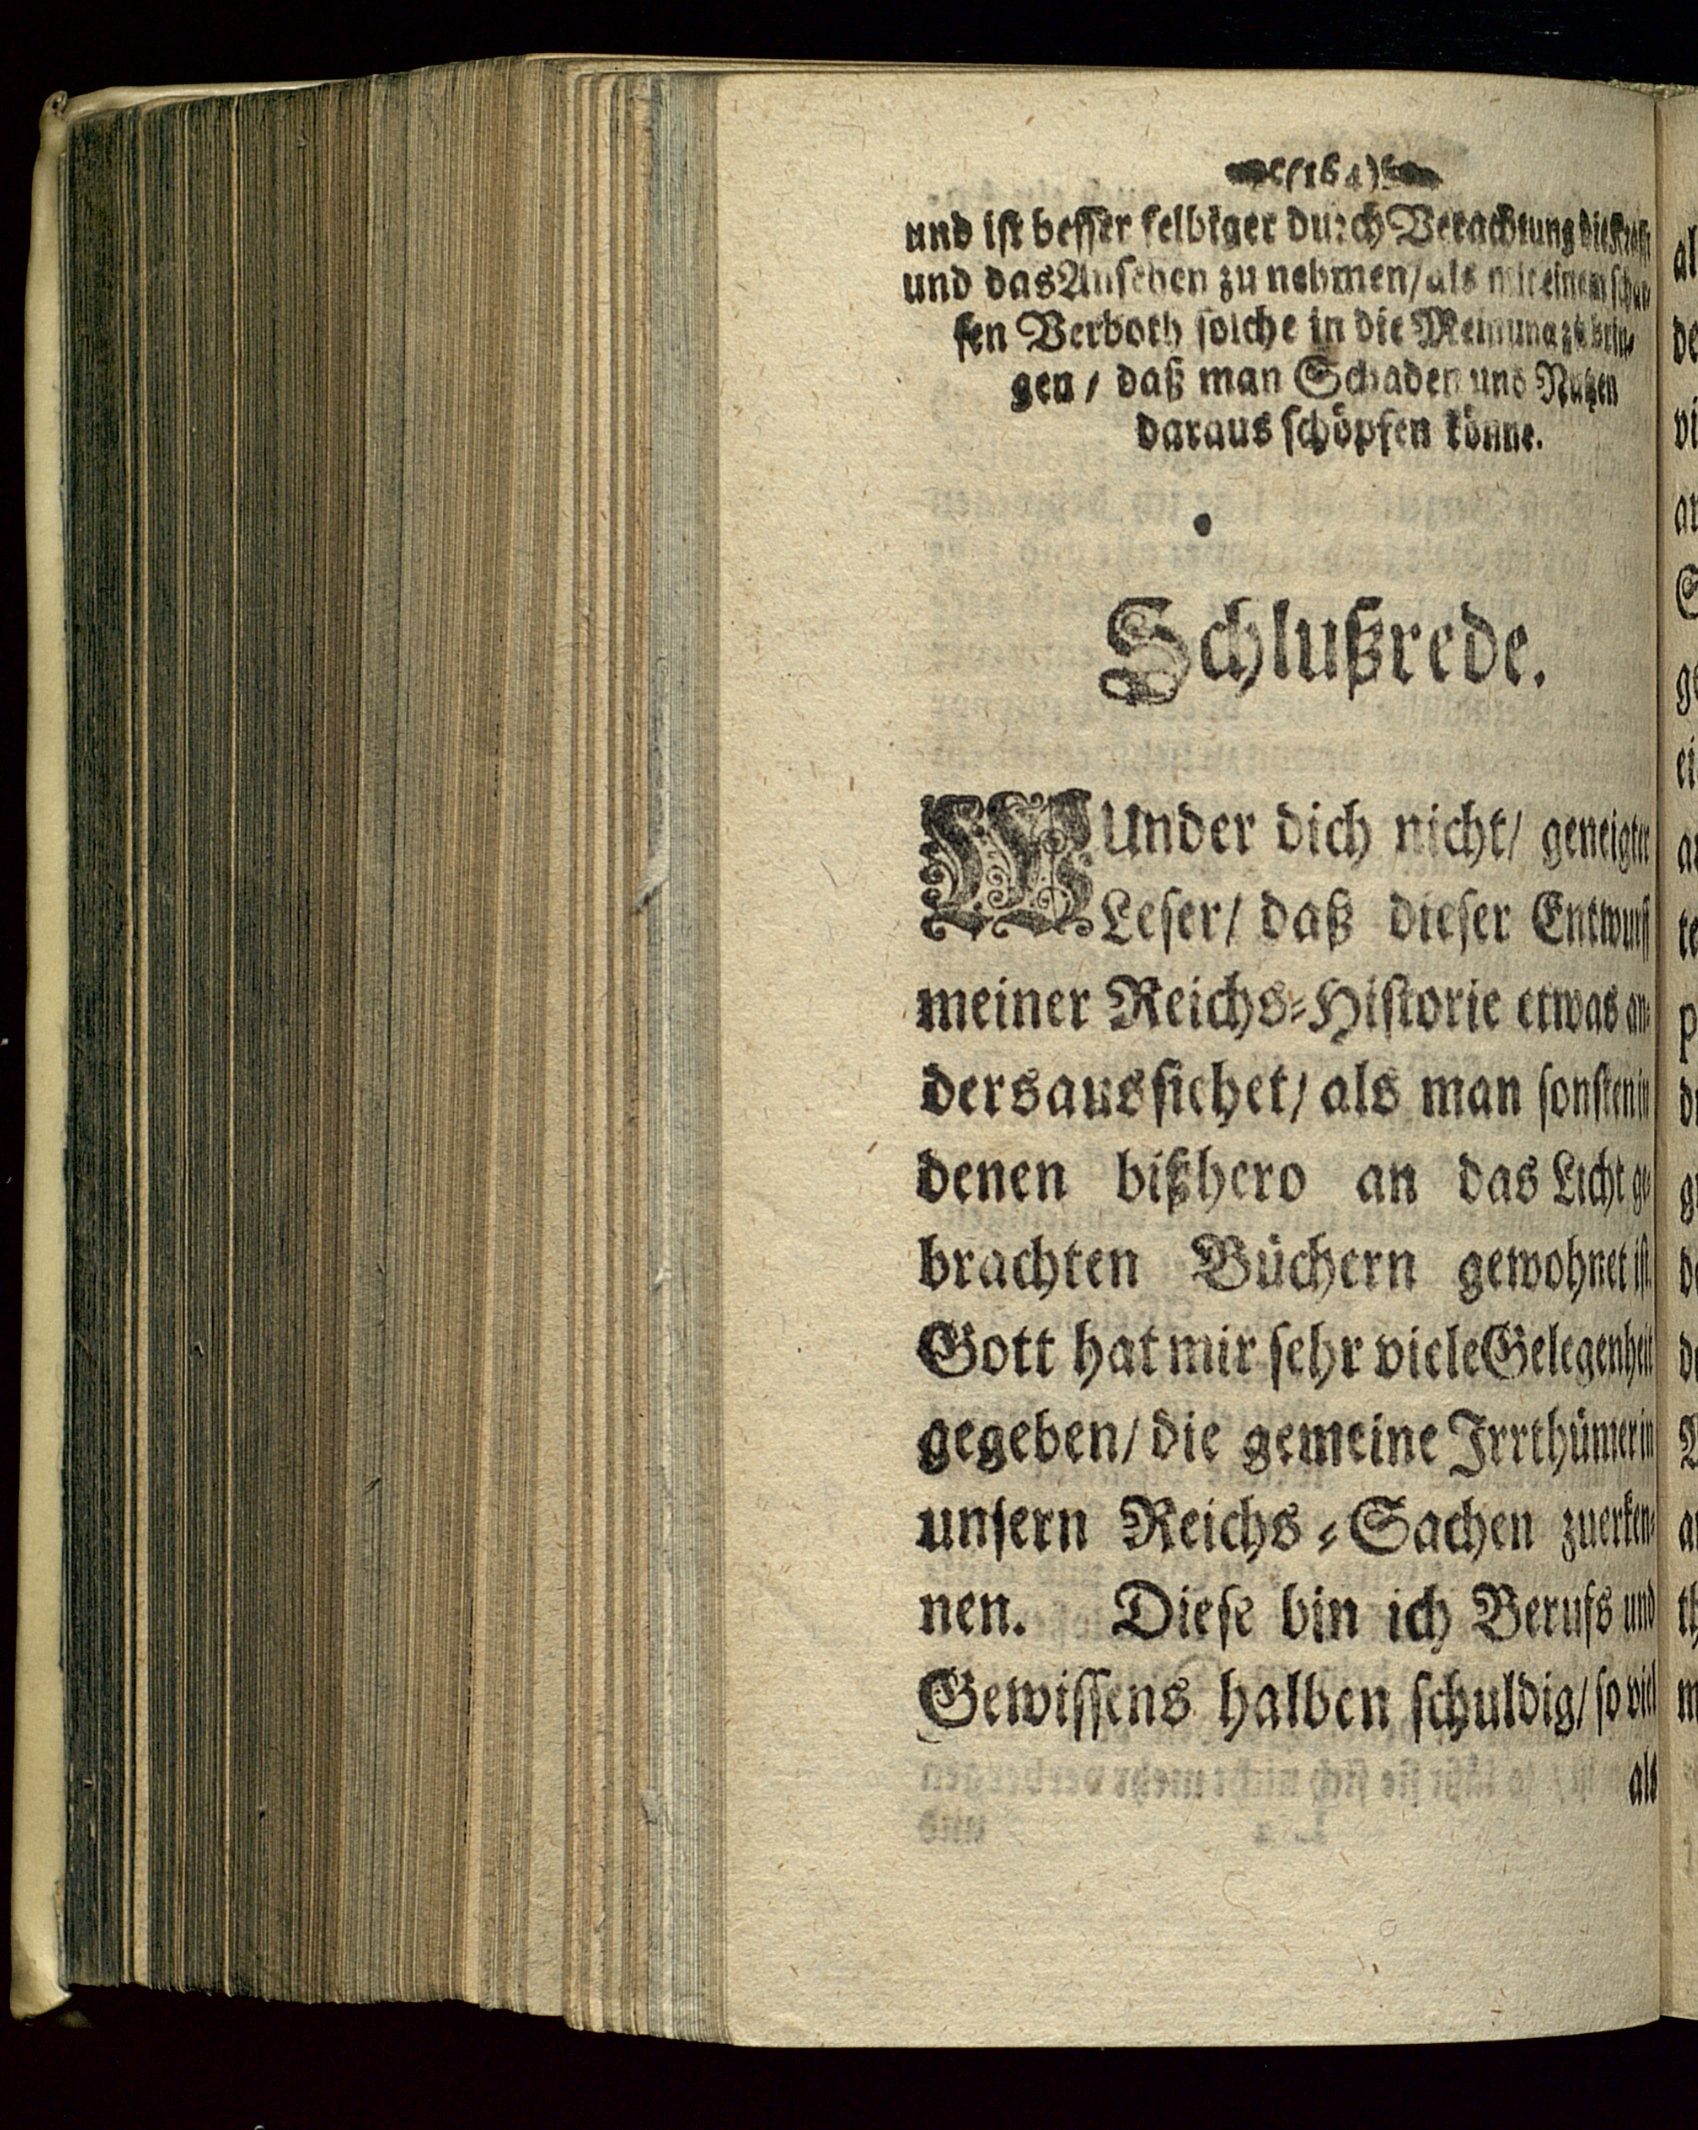 (164)
und ist besser selbiger durch Verachtung die Kraft
und das Ansehen zu nehmen/ als mit einem schar-
fen Verboth solche in die Meinung zu brin-
gen / daß man Schaden und Nutzen
daraus schöpfen könne.
Schlußrede.
WUnder dich nicht/ geneigter
Leser/ daß dieser Entwurff
meiner Reichs-Historie etwas an-
ders aussiehet/ als man sonsten in
denen bißhero an das Licht ge-
brachten Büchern gewohnet ist.
Gott hat mir sehr viele Gelegenheit
gegeben/ die gemeine Irrthümer in
unsern Reichs-Sachen zuerken-
nen. Diese bin ich Berufs und
Gewissens halben schuldig/ so viel
als